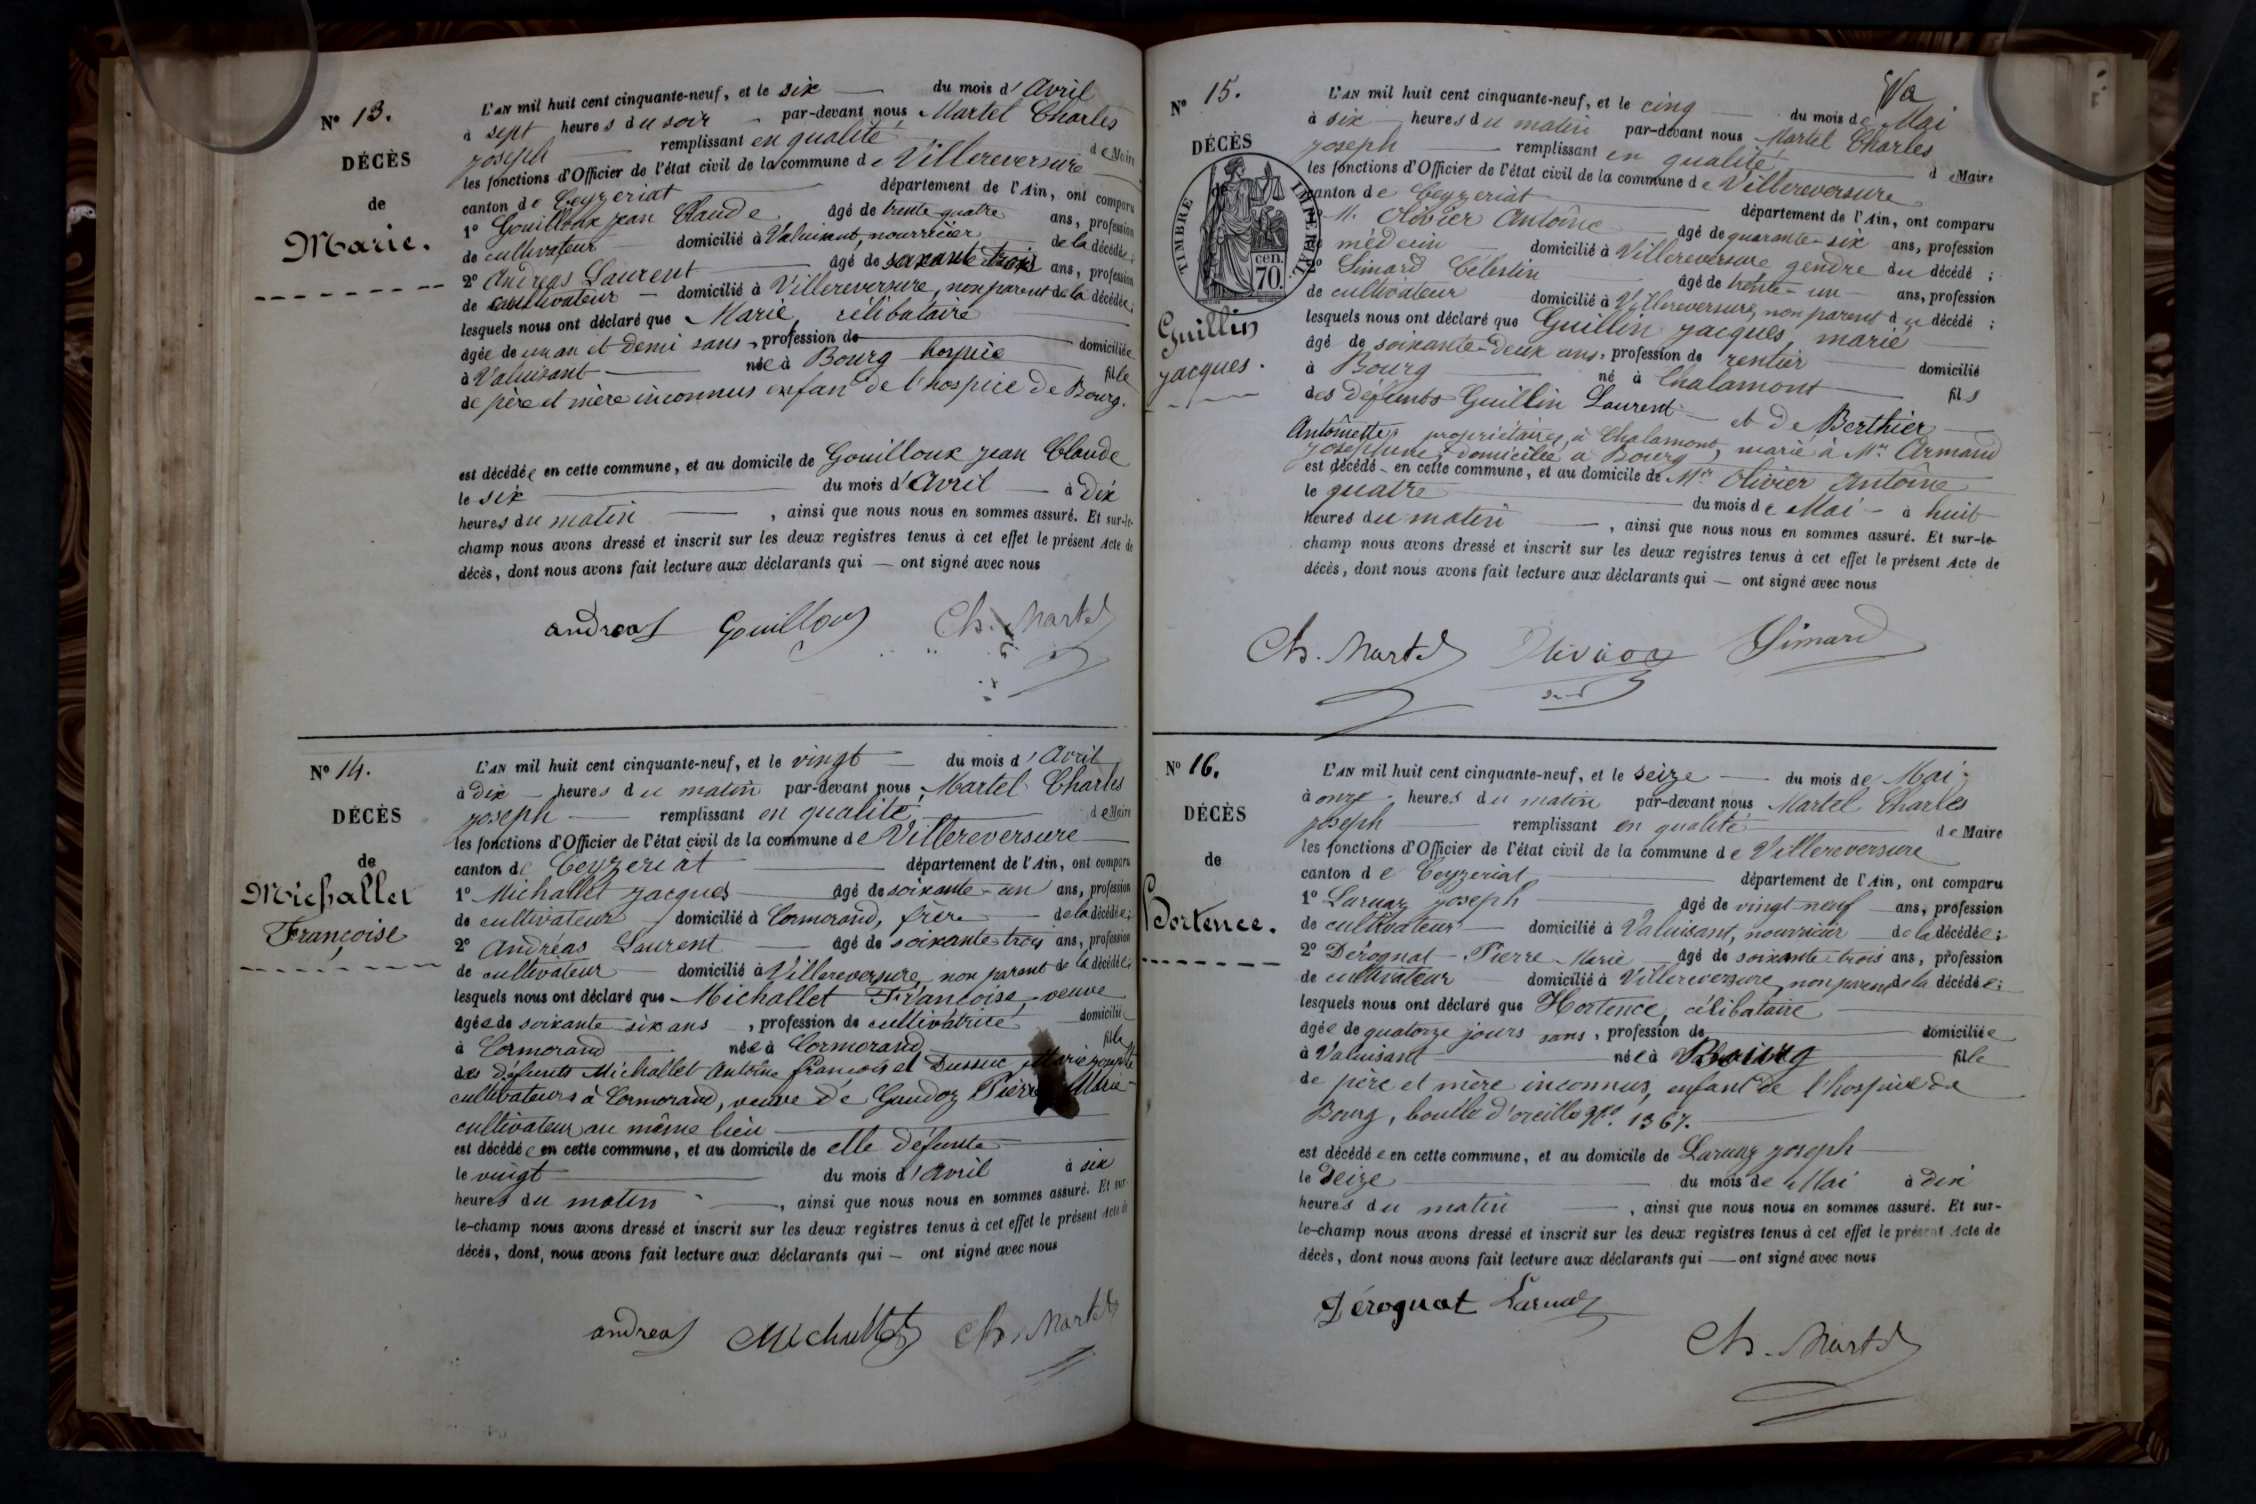 Nº 13.
DÉCÈS
de
Marie.
L'AN mil huit cent cinquante-neuf, et le six du mois d'Avril
à sept heures du soir par-devant nous Martel Charles
joseph remplissant en qualité de Maire
les fonctions d'Officier de l'état civil de la commune de Villereversure
canton de Ceyzeriat département de l'Ain, ont comparu
1º Gouilloux jean Claude âgé de trente quatre ans, profession
de cultivateur domicilié à Valuisant, nourricier de la décédée;
2º Andréas Laurent âgé de soixante trois ans, profession
de cultivateur domicilié à Villereversure, non parent de la décédée;
lesquels nous ont déclaré que Marie, célibataire
âgée de un an et demi sans, profession de domiciliée
à Valuisant née à Bourg hospice fille
de père et mère inconnus enfant de l'hospice de Bourg.
est décédée en cette commune, et au domicile de Gouilloux jean Claude
le six du mois d'Avril à Dix
heures du matin, ainsi que nous nous en sommes assuré. Et sur-le-
champ nous avons dressé et inscrit sur les deux registres tenus à cet effet le présent Acte de
décès, dont nous avons fait lecture aux déclarants qui — ont signé avec nous
andreas Gouilloux Ch. Martel
Nº 14.
DÉCÈS
de
Michallet
Françoise
L'AN mil huit cent cinquante-neuf, et le vingt du mois d'Avril
à dix heures du matin par-devant nous Martel Charles
joseph remplissant en qualité de Maire
les fonctions d'Officier de l'état civil de la commune de Villereversure
canton de Ceyzeriat département de l'Ain, ont comparu
1º Michallet jacques âgé de soixante-un ans, profession
de cultivateur domicilié à Cormorand, frère de la décédée;
2º Andréas Laurent âgé de soixante trois ans, profession
de cultivateur domicilié à Villereversure, non parent de la décédée;
lesquels nous ont déclaré que Michallet Françoise, veuve
âgée de soixante six ans, profession de cultivatrice domiciliée
à Cormorand née à Cormorand fille
des défunts Michallet Antoine françois et Dussuc Marie
cultivateurs à Cormorand, veuve de Gaudoz Pierre Marie
cultivateur au même lieu
est décédée en cette commune, et au domicile de elle défunte
le vingt du mois d'Avril à six
heures du matin, ainsi que nous nous en sommes assuré. Et sur-
le-champ nous avons dressé et inscrit sur les deux registres tenus à cet effet le présent Acte de
décès, dont, nous avons fait lecture aux déclarants qui — ont signé avec nous
andreas Michallet Ch. Martel
Nº 15.
DÉCÈS
de
TIMBRE IMPERIAL
cen.
70.
Guillin
jacques.
L'AN mil huit cent cinquante-neuf, et le cinq du mois de Mai
à six heures du matin par-devant nous Martel Charles
joseph remplissant en qualité de Maire
les fonctions d'Officier de l'état civil de la commune de Villereversure
canton de Ceyzeriat département de l'Ain, ont comparu
Mr. Olivier Antoine âgé de quarante-six ans, profession
de médecin domicilié à Villereversure gendre du décédé;
2º Simard Célestin âgé de trente-un ans, profession
de cultivateur domicilié à Villereversure, non parent du décédé;
lesquels nous ont déclaré que Guillin jacques, marié
âgé de soixante-deux ans, profession de rentier domicilié
à Bourg né à Chalamont fils
des défunts Guillin Laurent et de Berthier
Antoinette, propriétaires à Chalamont, marié à Mme Armand
josephine, domiciliée à Bourg
est décédé en cette commune, et au domicile de Mr Olivier Antoine
le quatre du mois de Mai à huit
heures du matin, ainsi que nous nous en sommes assuré. Et sur-le-
champ nous avons dressé et inscrit sur les deux registres tenus à cet effet le présent Acte de
décès, dont nous avons fait lecture aux déclarants qui — ont signé avec nous
Ch. Martel Olivier Simard
Nº 16.
DÉCÈS
de
Hortence.
L'AN mil huit cent cinquante-neuf, et le seize du mois de Mai
à onze heures du matin par-devant nous Martel Charles
joseph remplissant en qualité de Maire
les fonctions d'Officier de l'état civil de la commune de Villereversure
canton de Ceyzeriat département de l'Ain, ont comparu
1º Laruaz joseph âgé de vingt neuf ans, profession
de cultivateur domicilié à Valuisant, nourricier de la décédée;
2º Dérognat Pierre Marie âgé de soixante-trois ans, profession
de cultivateur domicilié à Villereversure, non parent de la décédée;
lesquels nous ont déclaré que Hortence, célibataire
âgée de quatorze jours sans, profession de domiciliée
à Valuisant née à Bourg fille
de père et mère inconnus, enfant de l'hospice de
Bourg, boucle d'oreille Nº. 1367.
est décédée en cette commune, et au domicile de Laruaz joseph
le Seize du mois de Mai à dix
heures du matin, ainsi que nous nous en sommes assuré. Et sur-
le-champ nous avons dressé et inscrit sur les deux registres tenus à cet effet le présent Acte de
décès, dont nous avons fait lecture aux déclarants qui — ont signé avec nous
Dérognat Laruaz
Ch. Martel